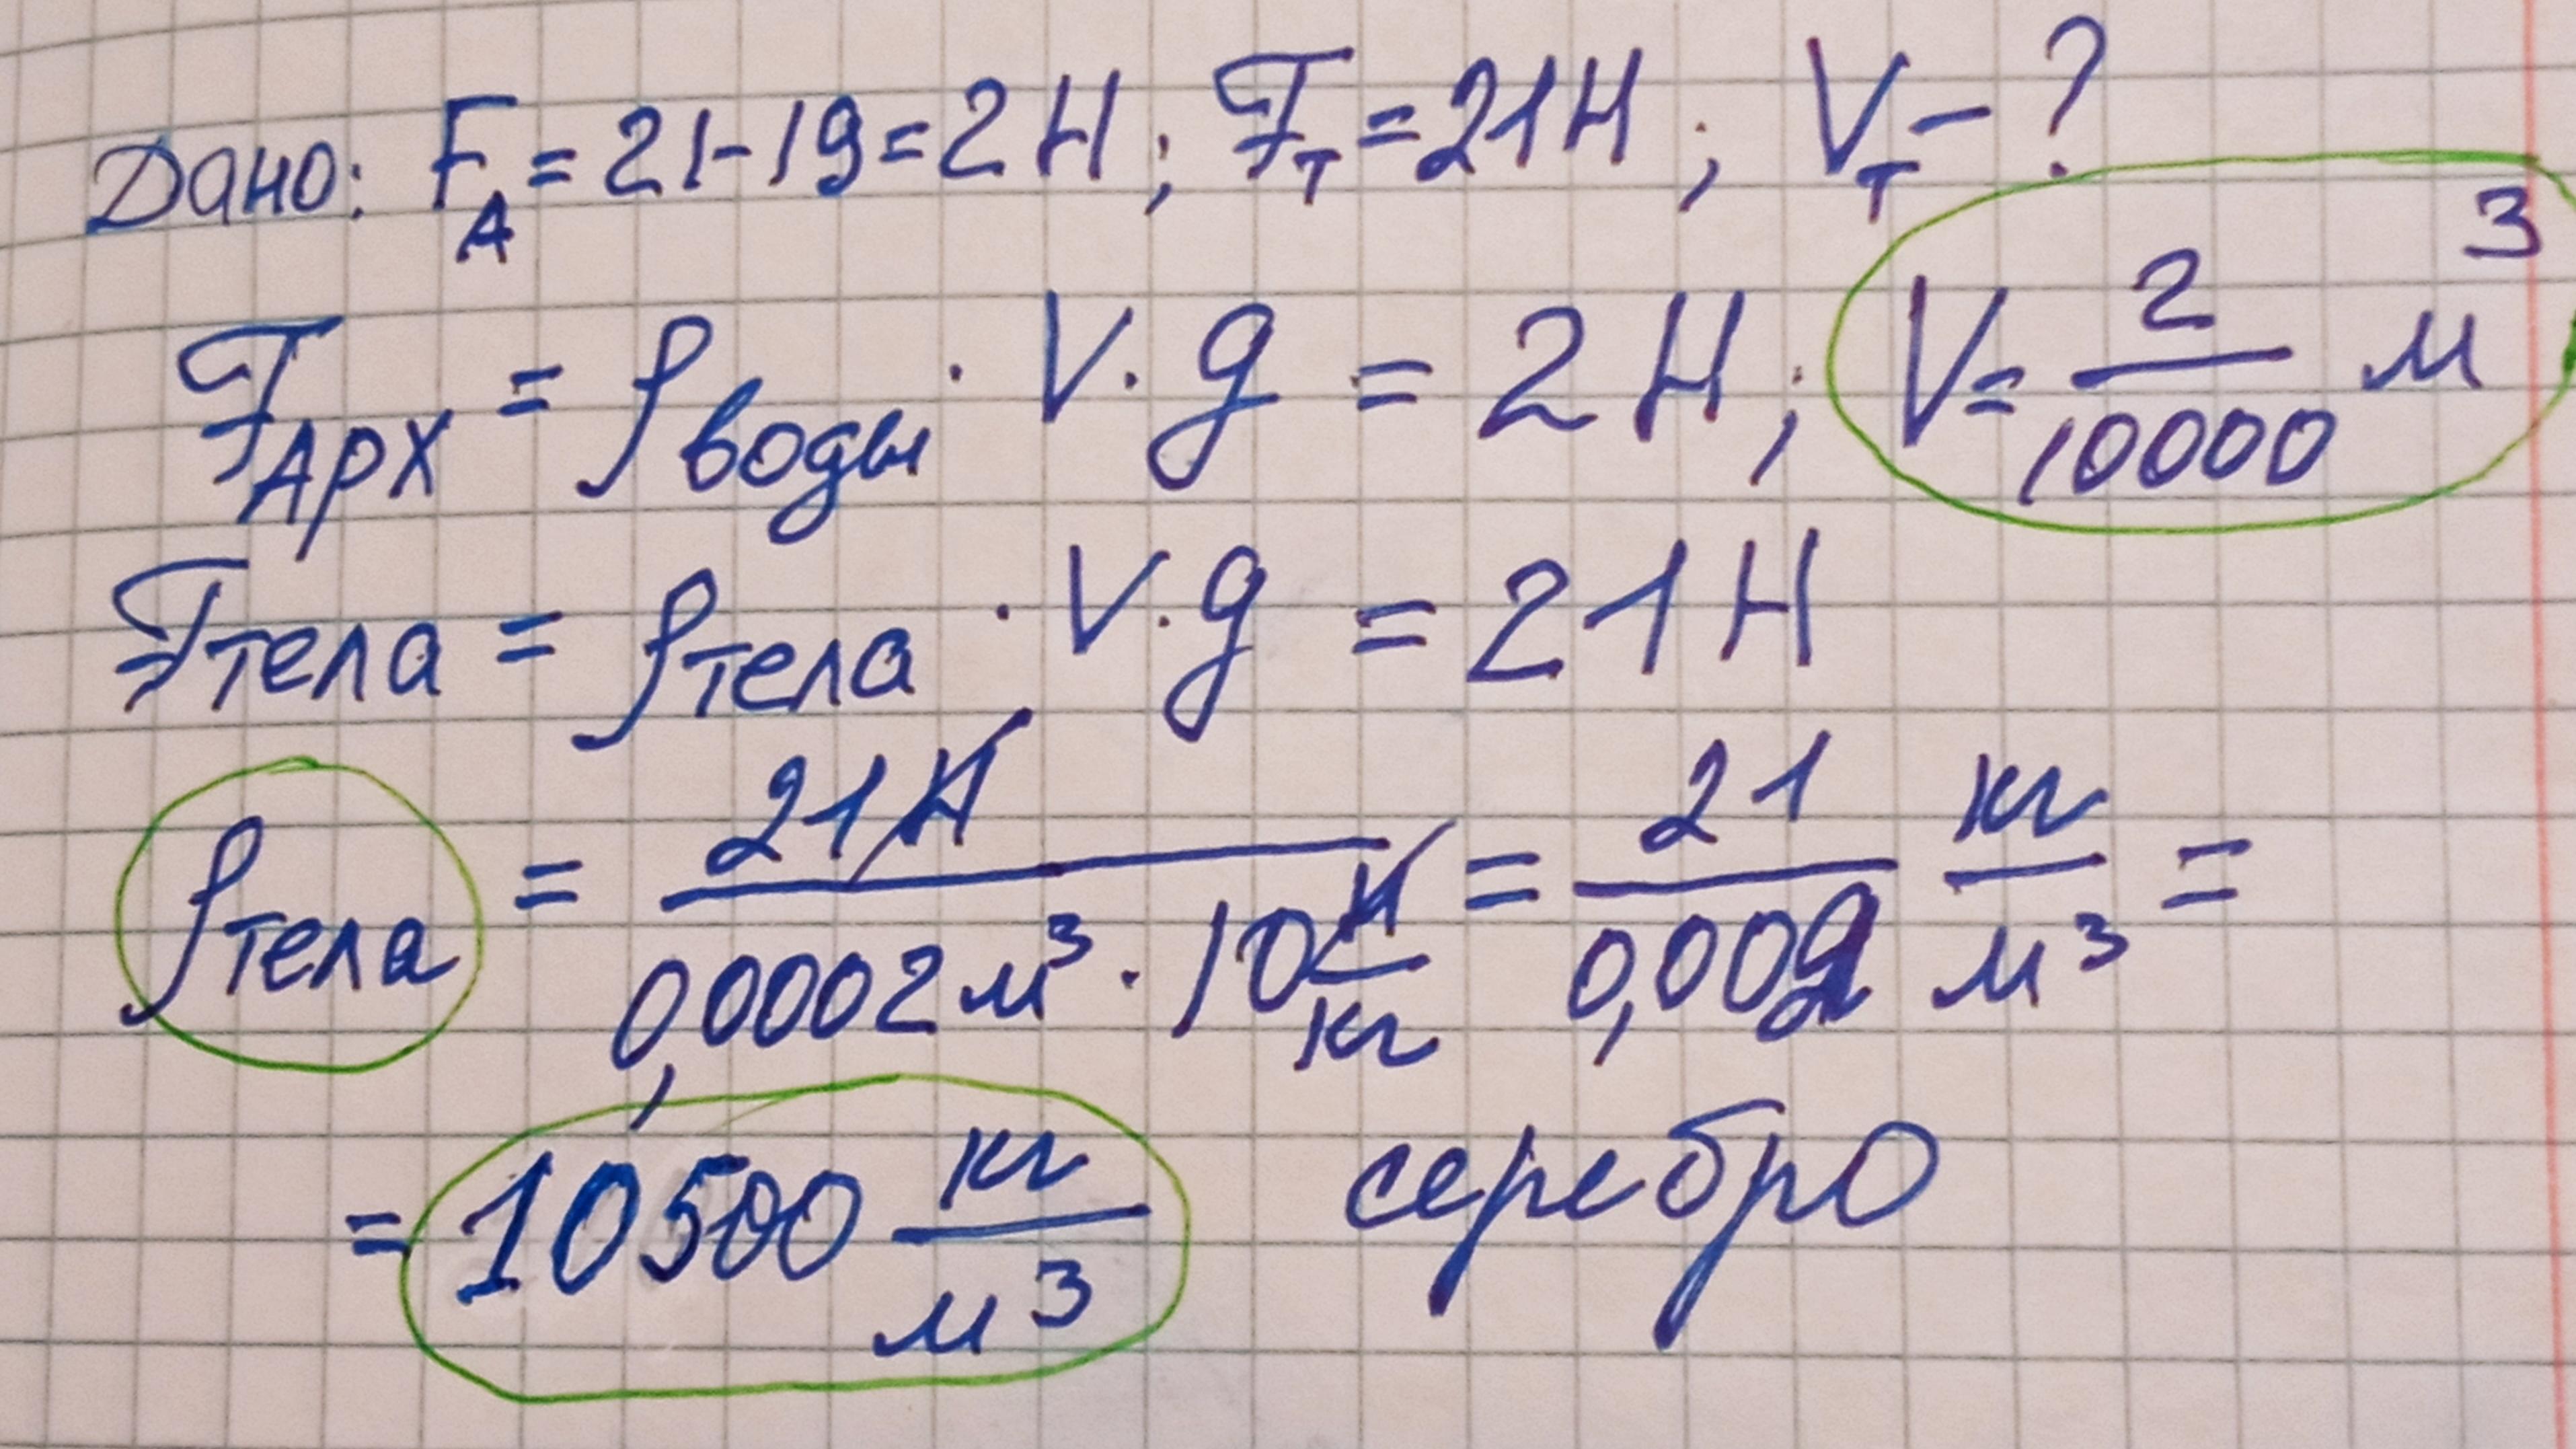 Дано: F_A = 21-19=2Н; F_т=21Н; V_т-?
F_Арх = ρ_воды · V · g = 2Н; V= 2/10000 м³
F_тела = ρ_тела · V · g = 21Н
ρ_тела = 21Н / 0,0002 м³ · 10 Н/кг = 21/0,002 кг/м³ =
= 10500 кг/м³ серебро